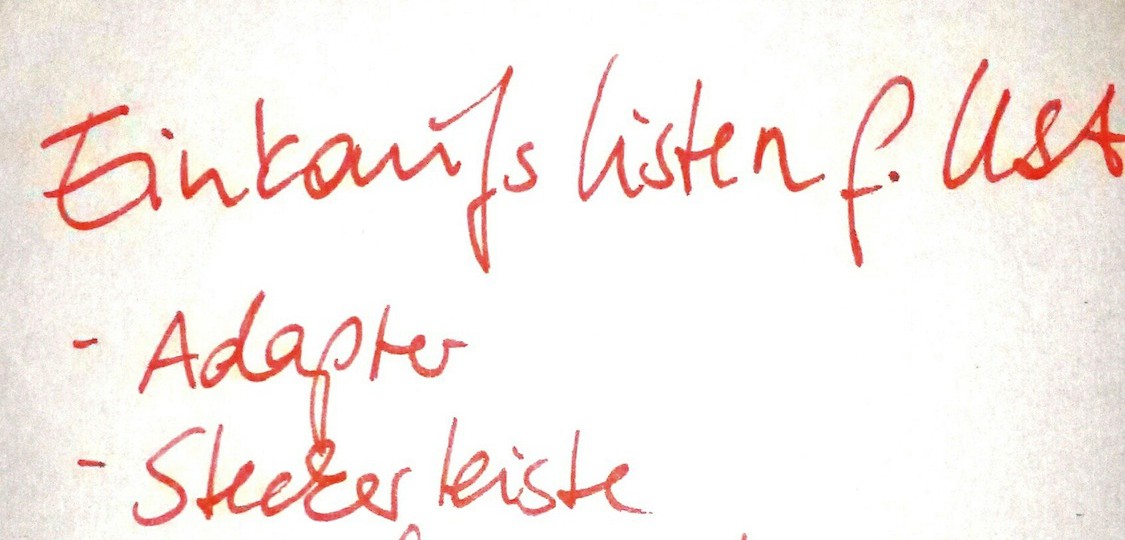 Einkaufslisten f. USA
- Adapter
- Steckerleiste